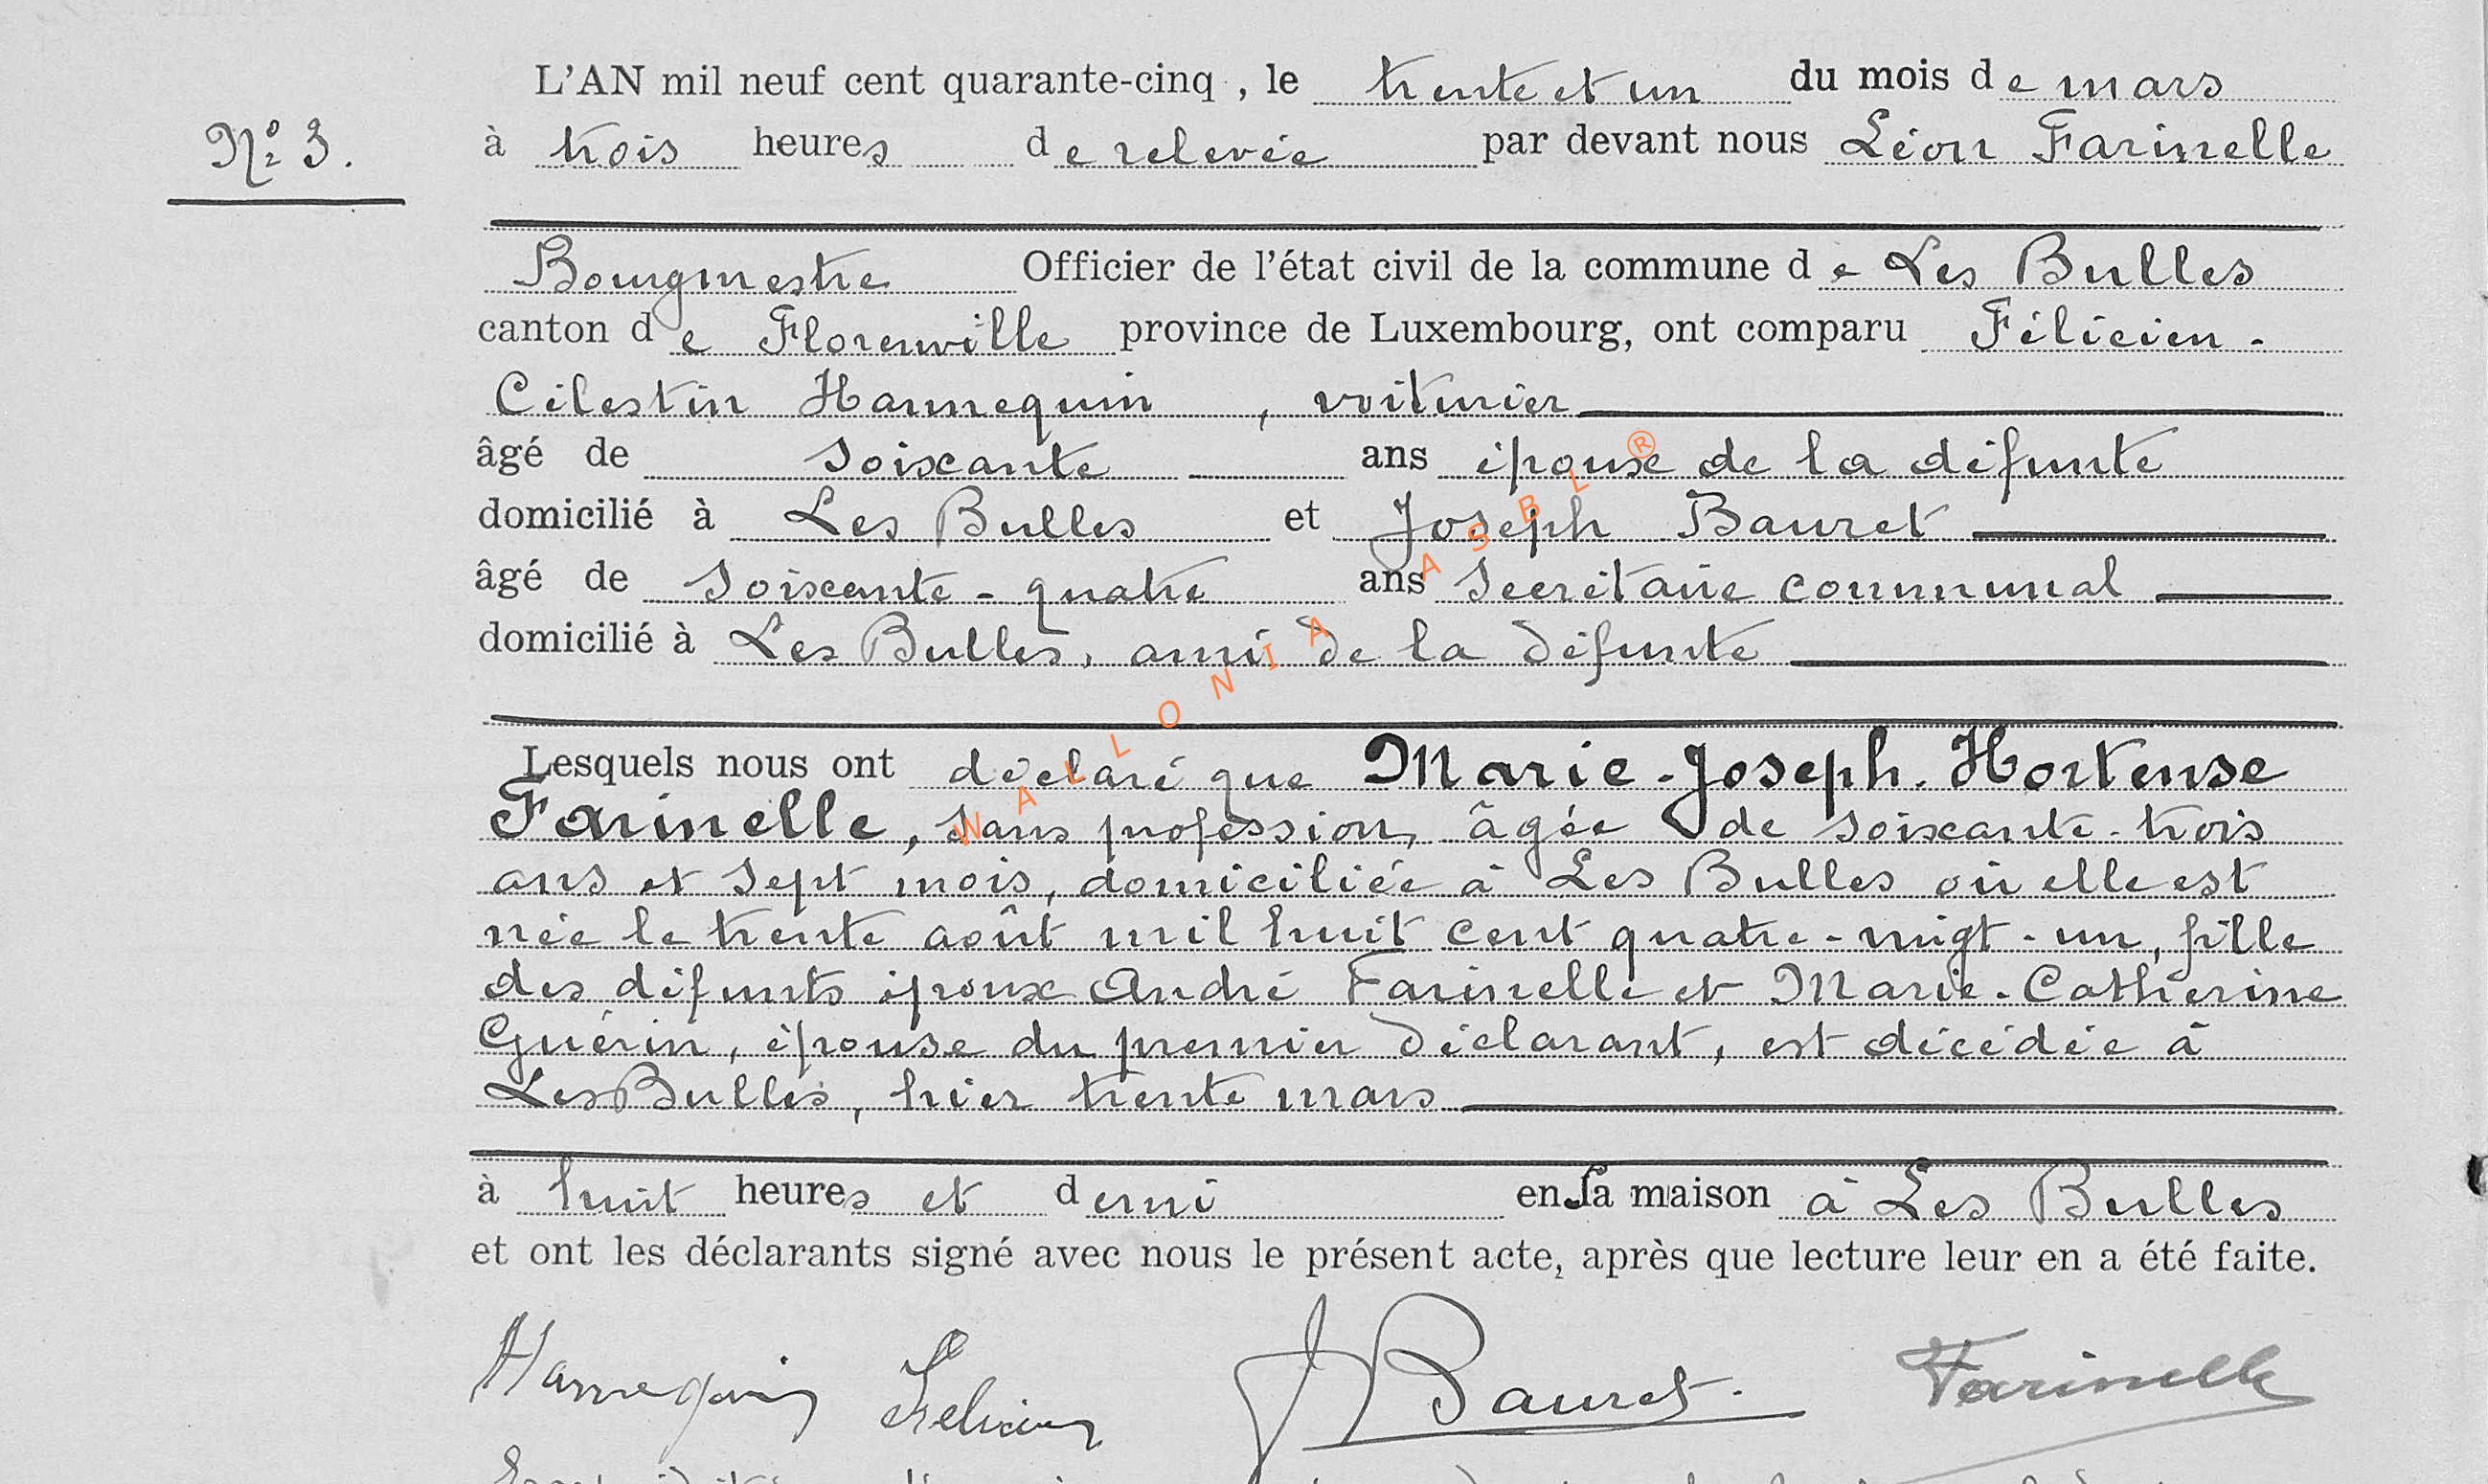 L'AN mil neuf cent quarante-cinq , le trente et un du mois de mars
Nº 3. à trois heures de relevée par devant nous Léon Farinelle
Bourgmestre Officier de l'état civil de la commune de Les Bulles
canton de Florenville province de Luxembourg, ont comparu Félicien-
Célestin Hannequin , voiturier
âgé de soixante ans époux de la défunte
domicilié à Les Bulles et Joseph Bauret
âgé de soixante-quatre ans secrétaire communal
domicilié à Les Bulles, ami de la défunte
Lesquels nous ont déclaré que Marie-Joseph-Hortense
Farinelle, sans profession, âgée de soixante-trois
ans et sept mois, domiciliée à Les Bulles où elle est
née le trente août mil huit cent quatre-vingt-un, fille
des défunts époux André Farinelle et Marie-Catherine
Guérin, épouse du premier déclarant, est décédée à
Les Bulles, hier trente mars
à huit heures et demi en sa maison à Les Bulles
et ont les déclarants signé avec nous le présent acte, après que lecture leur en a été faite.
Hannequin Felicien J Bauret. Farinelle
WALLONIA ASBL ®